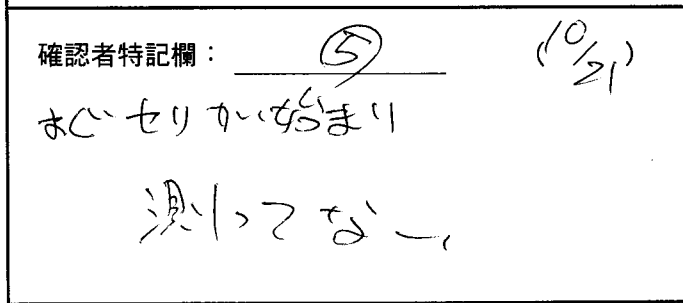 確認者特記欄: ⑤ (10/21)
すぐセリが始まり
測ってない